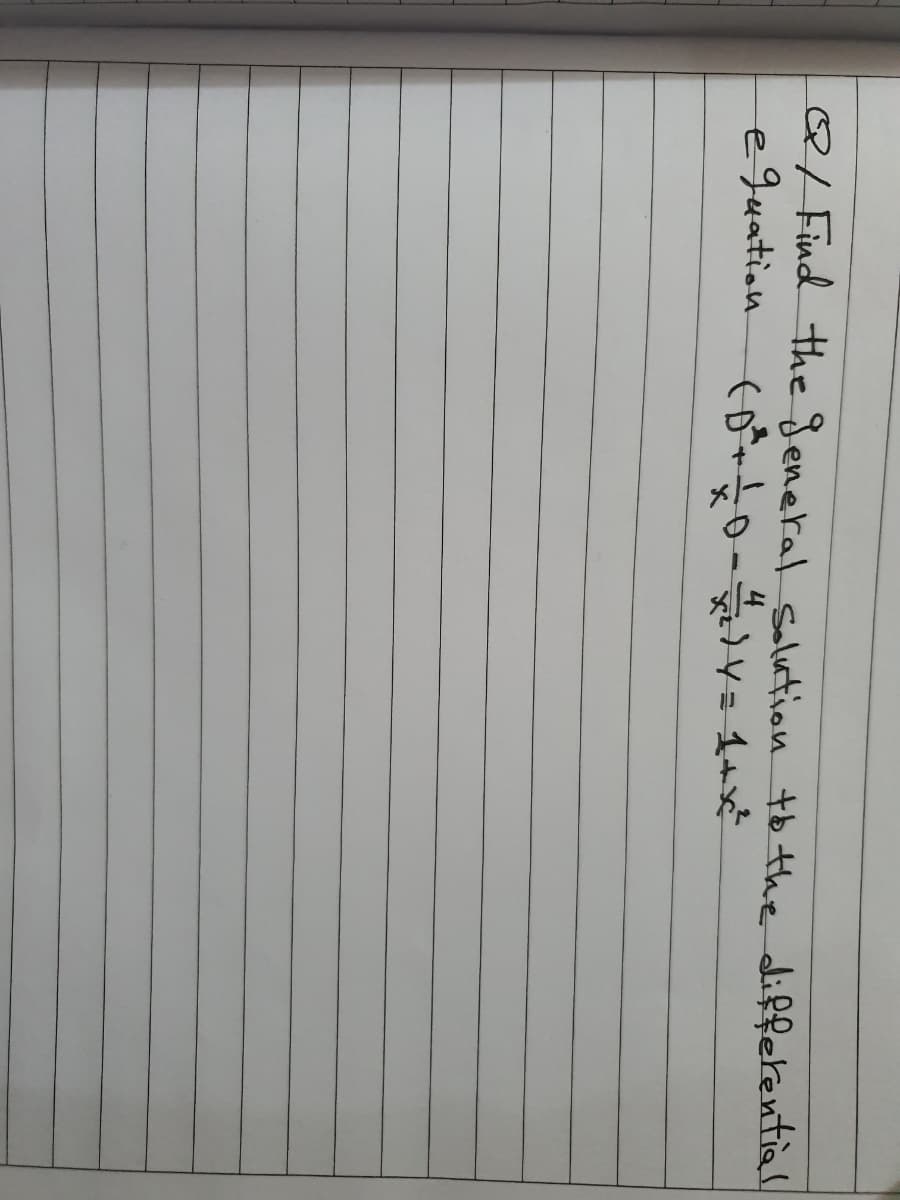 Q/ Find the general solution to the differential
equation (D² + 1/x D - 4/x²) y = 1 + x²